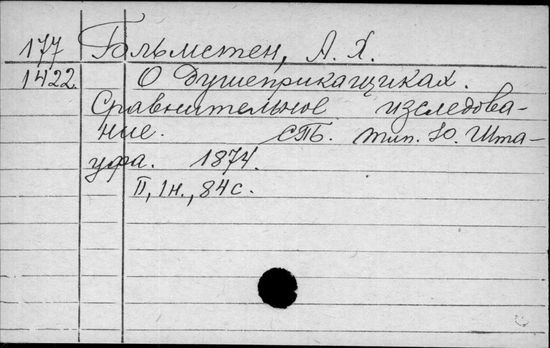 177 Гольмстен, А. Х.
1422 О душеприкащиках.
Сравнительное изследова-
ние. СПБ. тип. Ю. Шта-
уфа. 1874.
II, 1н., 84 с.